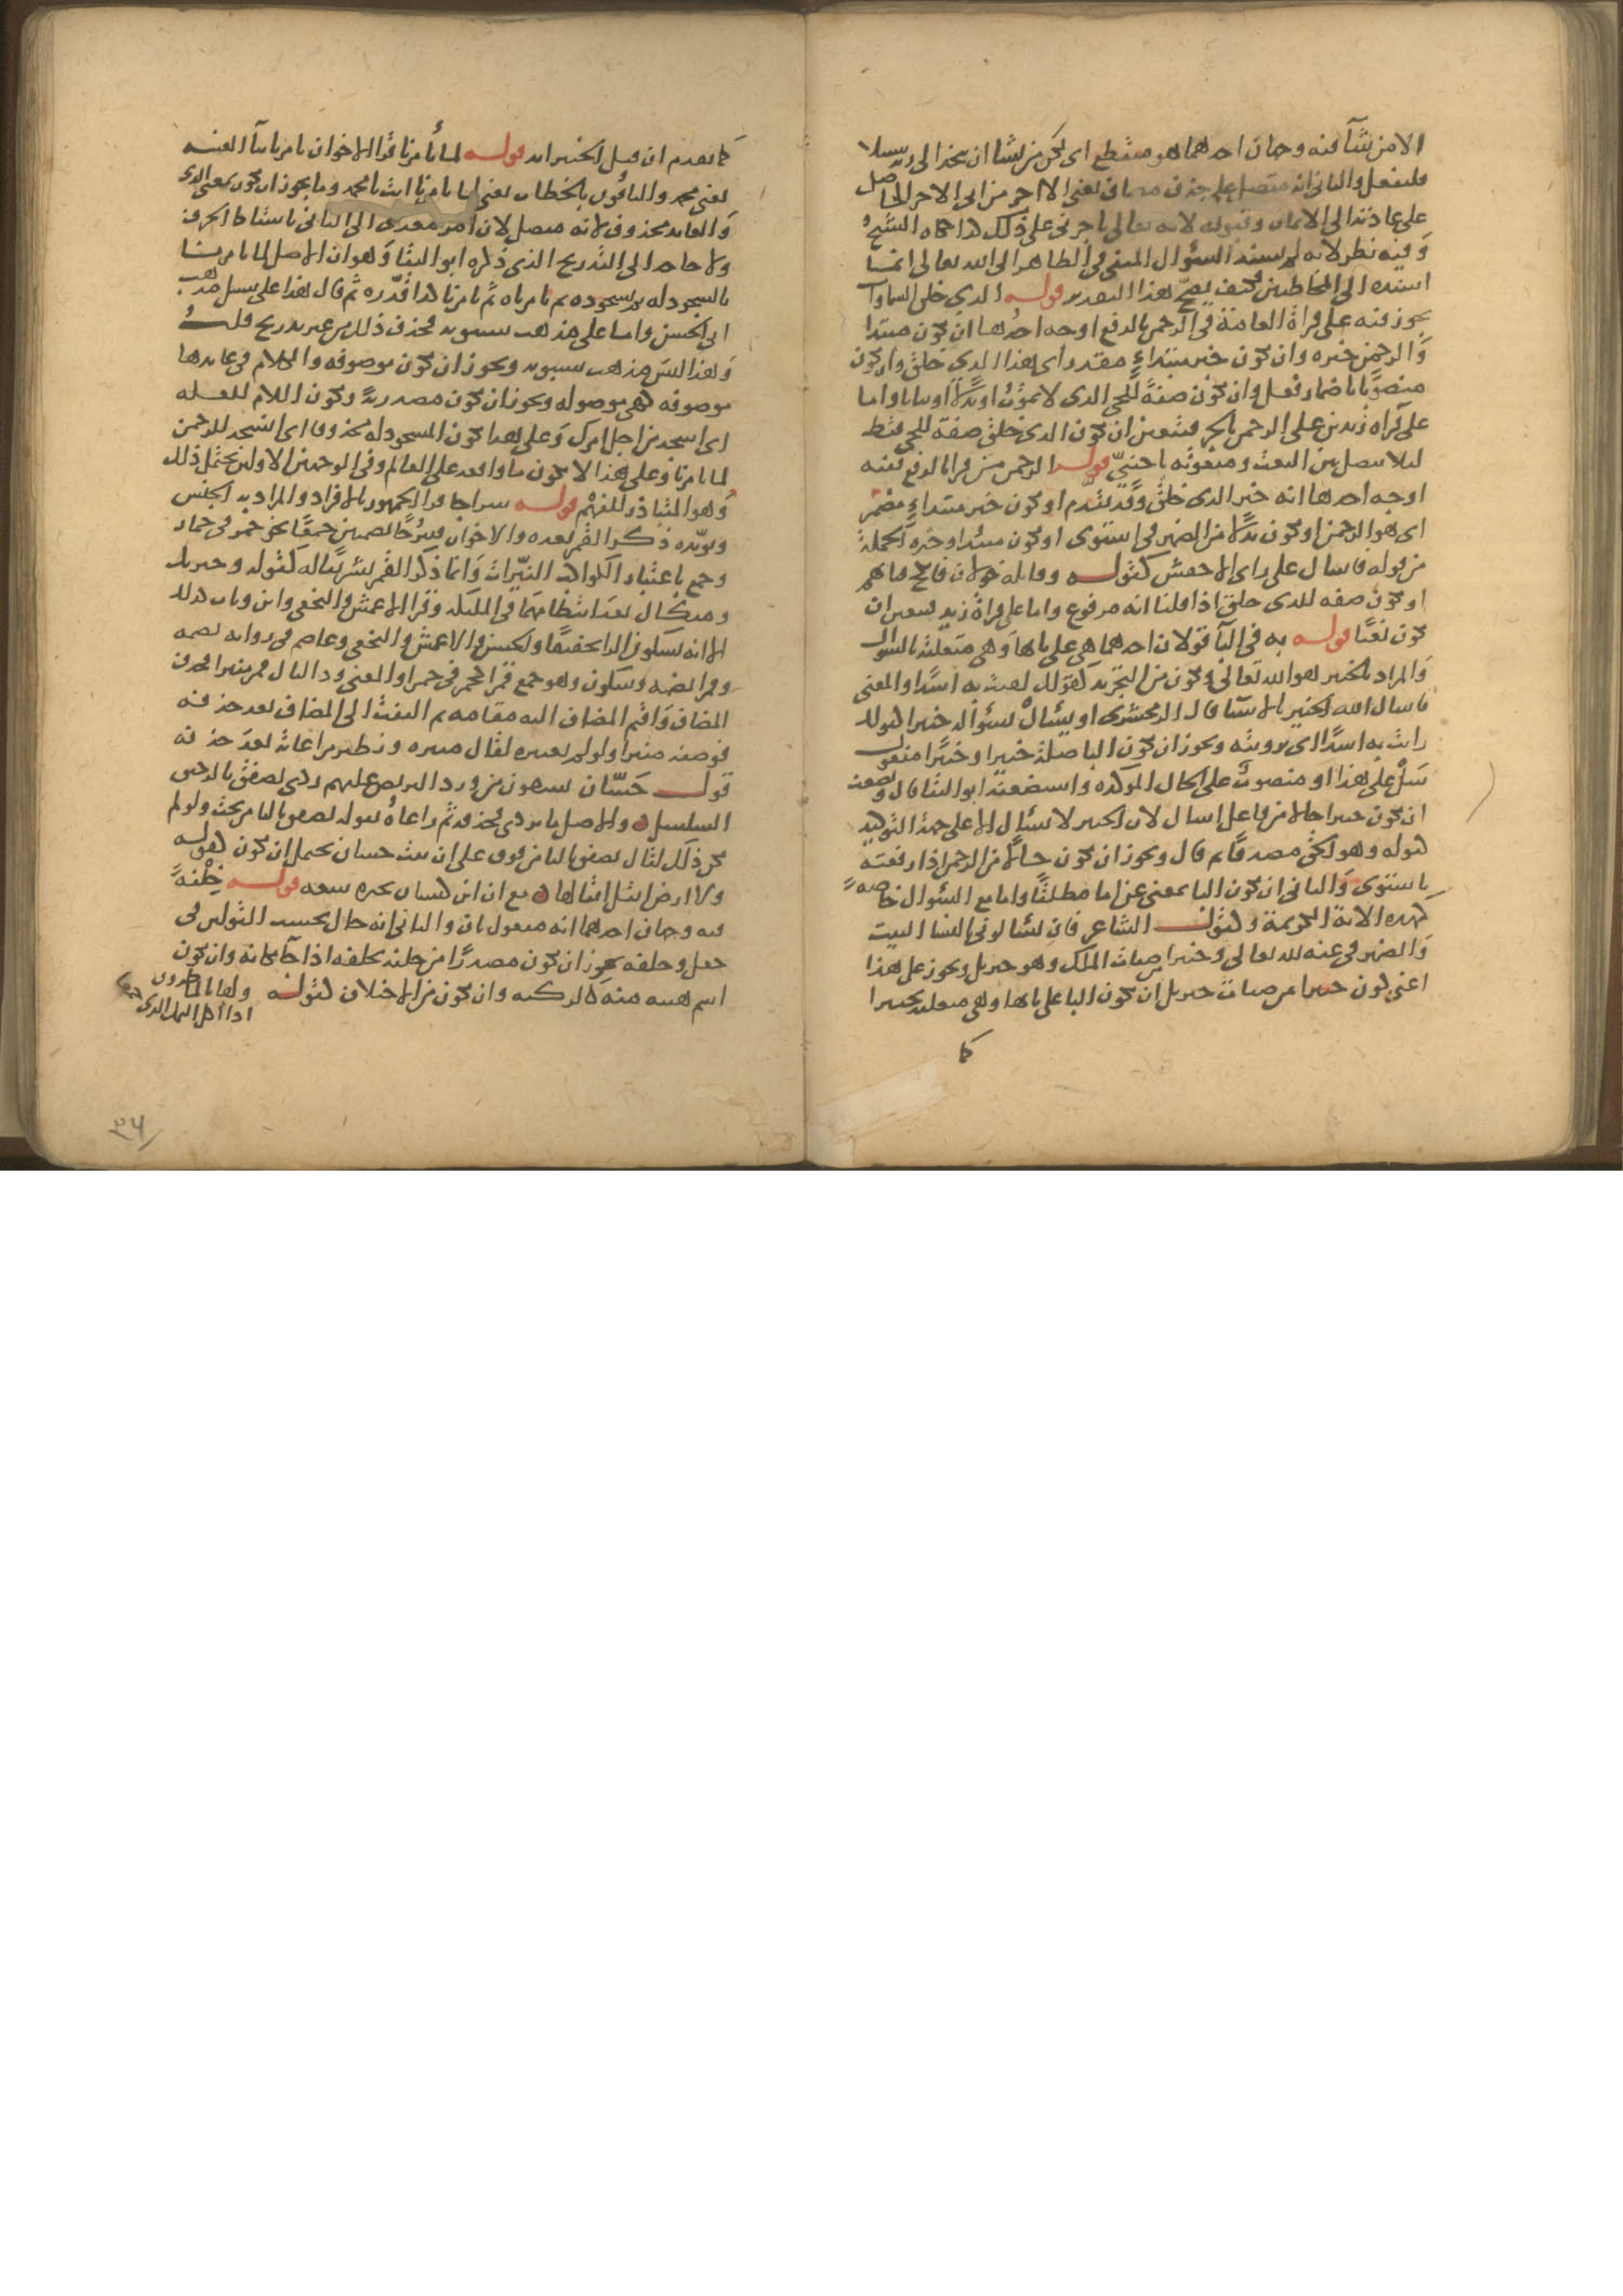 الا من شآ فيه وجهان احدهما هو منقطع اى لكن من يشا ان يتخذ الى ربه سبيلا
فليفعل والثانى انه متصل على حذف مضاف يعنى الا اجر من اى الا اجر الحاصل
على دعائه الى الايمان وقبوله لانه تعالى ياجرنى على ذلك كذا حكاه الشيخ
وفيه نظر لانه لم يسند السؤال المنفى فى الظاهر الى الله تعالى انما
اسنده الى المخاطبين فكيف يصح هذا التقدير قوله الذي خلق السماوات
يجوز فيه على قراة العامة فى الرحمن بالرفع اوجه احدها ان يكون مبتدا
والرحمن خبره وان يكون خبر مبتداء مقدر اى هذا الذى خلق وان يكون
منصوبا باضمار فعل وان يكون صفة للحى الذى لا يموت او بدلا او بيانا واما
على قراه زيد بن على الرحمن بالجر فيتعين ان يكون الذى خلق صفة للحى فقط
ليلا يفصل بين النعت ومنعوته باجنبى قوله الرحمن من قرا بالرفع ففيه
اوجه احدها انه خبر الذى خلق وقد تقدم او يكون خبر مبتداء مضمر
اى هو الرحمن او يكون بدلا من الضمير فى استوى او يكون مبتدا وخبره الجملة
من قوله فاسال على راى الاخفش كقوله وقايلة خولان فانكح فتاتهم
او يكون صفه للذى خلق اذا قلنا انه مرفوع واما على قراة زيد فيتعين ان
يكون نعتا قوله به فى البآ قولان احدهما هى على بابها وهى متعلقة بالسوال
والمراد بالخبير هو الله تعالى ويكون من التجريد كقولك لقيت به اسدا والمعنى
فاسال الله الخبير بالاشيا قال الزمخشرى او فسال بسؤاله خبيرا كقولك
رايت به اسدا اى برويته ويجوز ان يكون البا صلة خبيرا وخبيرا مفعول
سل على هذا او منصوب على الحال الموكده واستضعفه ابو البقا قال ويضعف
ان يكون خبيرا حالا من فاعل اسال لان الخبير لا يسال الا على جهة التوكيد
كقوله وهو الحق مصدقا ثم قال ويجوز ان يكون حالا من الرحمن اذا رفعته
باستوى والثانى ان يكون البا بمعنى عن اما مطلقا واما مع السؤال خاصة
كهذه الاية الكريمة وكقول الشاعر فان تسالونى بالنسا البيت
والضمير فى عنه لله تعالى وخبيرا من صفات الملك وهو جبريل ويجوز على هذا
اعنى كون خبيرا من صفات جبريل ان يكون البا على بابها وهى متعلقه بخبيرا
كما
كما تقدم ان قيل الخبير انه قوله لما تأمرنا قرا الاخوان يامرنا بيآ الغيبه
يعنى محمد والباقون بالخطاب يعنى لما تامرنا انت يا محمد وما يجوز ان تكون بمعنى الذى
والعايد محذوف لانه متصل لان امر يتعدى الى الثانى باسقاط الحرف
ولا حاجه الى التدريج الذى ذكره ابو البقا وهو ان الاصل لما تامرنا
بالسجود له ثم بسجوده ثم تامرناه ثم تامرنا كذا قدره ثم قال هذا على سبيل مذهب
ابى الحسن واما على مذهب سيبويه فحذف ذلك من غير تدريج قلت
وهذا ليس مذهب سيبويه ويجوز ان تكون موصوفه والكلام فى عايدها
موصوفه كهى موصوله ويجوز ان تكون مصدرية وتكون اللام للعله
اى انسجد من اجل امرك وعلى هذا يكون المسجود له محذوفا اى انسجد للرحمن
لما تامرنا وعلى هذا لا تكون ما واقعه على العالم وفى الوجهين الاولين يحتمل ذلك
وهو المتبادر للفهم قوله سراجا قرا الجمهور بالافراد والمراد به الجنس
ويويده ذكر القمر بعده والاخوان سرجا بضمتين جمعا نحو حمر فى حمار
وجمع باعتبار الكواكب النيرات وانما ذكر القمر تشريفا له كقوله وجبريل
وميكال بعد انتظامهما فى الملائكه وقرا الاعمش والنخعى وابن وثاب كذلك
الا انه بسكون الرا تخفيفا والحسن والاعمش والنخعى وعاصم فى روايه بضمه
وقمرا بضمه وسكون وهو جمع قمرا كحمر فى حمرا والمعنى وذا ليال قمر منيرا فحذف
المضاف واقيم المضاف اليه مقامه ثم التفت الى المضاف بعد حذفه
فوصفه منيرا ولو لم يعتبره لقال منيره ونظيره مراعاته بعد حذفه
قول حسان يسقون من ورد البريص عليهم بردى يصفق بالرحيق
السلسل والاصل ما بردى فحذفه ثم راعاه بقوله يصفق باليا من تحت ولو لم
يكن ذلك لقال تصفق بالتا من فوق على ان بيت حسان يحتمل ان يكون كقوله
ولا ارض ابقل ابقالها مع ان ابن كيسان يجيزه سعه قوله خلفة
فيه وجهان احدهما انه مفعول ثان والثانى انه حال بحسب القولين فى
جعل وخلفه يجوز ان تكون مصدرا من خلفه يخلفه اذا جآ مكانه وان تكون
اسم هيئه منه كالركبه وان تكون من الاختلاف كقوله ولها بالماطرون
اذا اكل النمل الذى